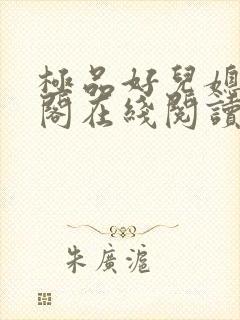 極品好兒媳
閣在綫閱讀
朱廣滬